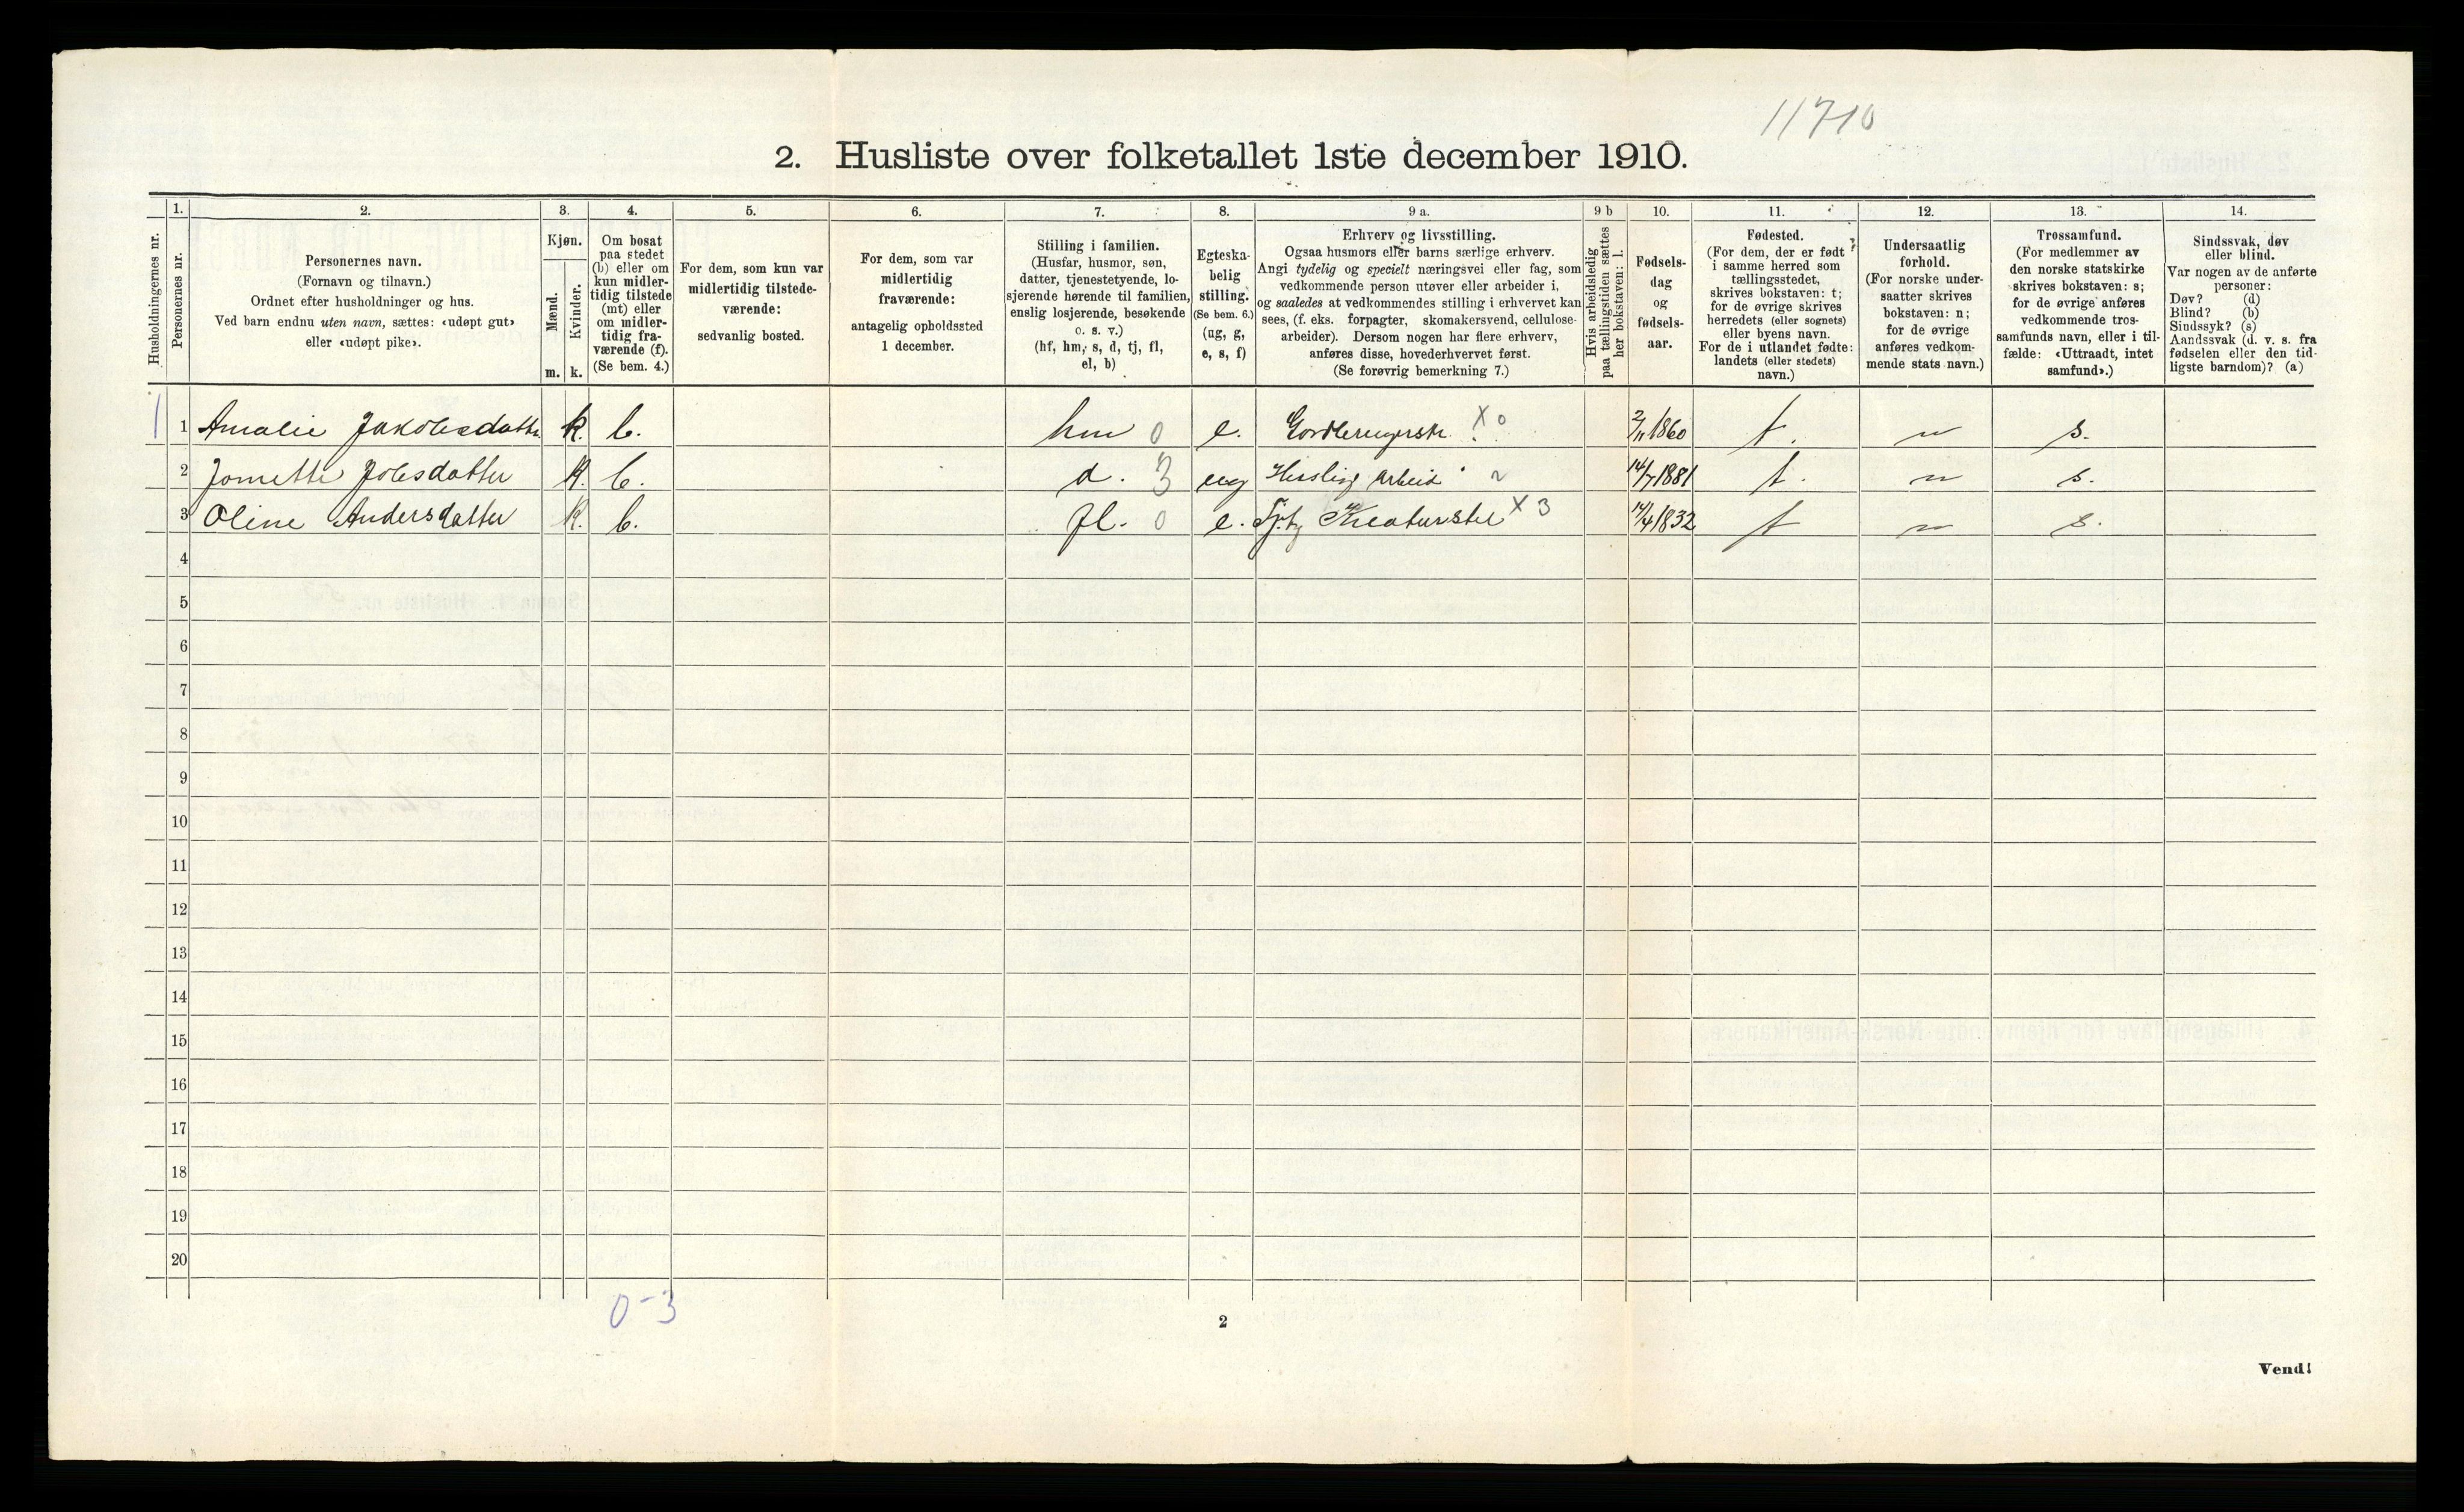 11710
2. Husliste over folketallet 1ste december 1910.
Husholdningernes nr.
1.
Personernes nr.
2.
Personernes navn.
(Fornavn og tilnavn.)
Ordnet efter husholdninger og hus.
Ved barn endnu uten navn, sættes: «udøpt gut»
eller «udøpt pike».
3.
Kjøn.
Mænd.
Kvinder.
m. k.
4.
Om bosat
paa stedet
(b) eller om
kun midler-
tidig tilstede
(mt) eller
om midler-
tidig fra-
værende (f).
(Se bem. 4.)
5.
For dem, som kun var
midlertidig tilstede-
værende:
sedvanlig bosted.
6.
For dem, som var
midlertidig
fraværende:
antagelig opholdssted
1 december.
7.
Stilling i familien.
(Husfar, husmor, søn,
datter, tjenestetyende, lo-
sjerende hørende til familien,
enslig losjerende, besøkende
o. s. v.)
(hf, hm, s, d, tj, fl,
el, b)
8.
Egteska-
belig
stilling.
(Se bem. 6.)
(ug, g,
e, s, f)
9 a.
Erhverv og livsstilling.
Ogsaa husmors eller barns særlige erhverv.
Angi tydelig og specielt næringsvei eller fag, som
vedkommende person utøver eller arbeider i,
og saaledes at vedkommendes stilling i erhvervet kan
sees, (f. eks. forpagter, skomakersvend, cellulose-
arbeider). Dersom nogen har flere erhverv,
anføres disse, hovederhvervet først.
(Se forøvrig bemerkning 7.)
9 b
Hvis arbeidsledig
paa tællingstiden sættes
her bokstaven: l.
10.
Fødsels-
dag
og
fødsels-
aar.
11.
Fødested.
(For dem, der er født
i samme herred som
tællingsstedet,
skrives bokstaven: t;
for de øvrige skrives
herredets (eller sognets)
eller byens navn.
For de i utlandet fødte:
landets (eller stedets)
navn.)
12.
Undersaatlig
forhold.
(For norske under-
saatter skrives
bokstaven: n;
for de øvrige
anføres vedkom-
mende stats navn.)
13.
Trossamfund.
(For medlemmer av
den norske statskirke
skrives bokstaven: s;
for de øvrige anføres
vedkommende tros-
samfunds navn, eller i til-
fælde: «Uttraadt, intet
samfund».)
14.
Sindssvak, døv
eller blind.
Var nogen av de anførte
personer:
Døv? (d)
Blind? (b)
Sindssyk? (s)
Aandssvak (d. v. s. fra
fødselen eller den tid-
ligste barndom)? (a)
1 1 Amalie Jakobsdatter k. b. hm 0 e. X 0 2/11 1860 t. n s.
2 Jomette k. b. d. 3 ug Huslig Arbeid 14/7 1881 t. n s.
3 Oline Andersdatter k. b. fl. 0 e. Kreaturstel X 3 1832 t n s.
4
5
6
7
8
9
10
11
12
13
14
15
16
17
18
19
20
0-3
2
Vend!